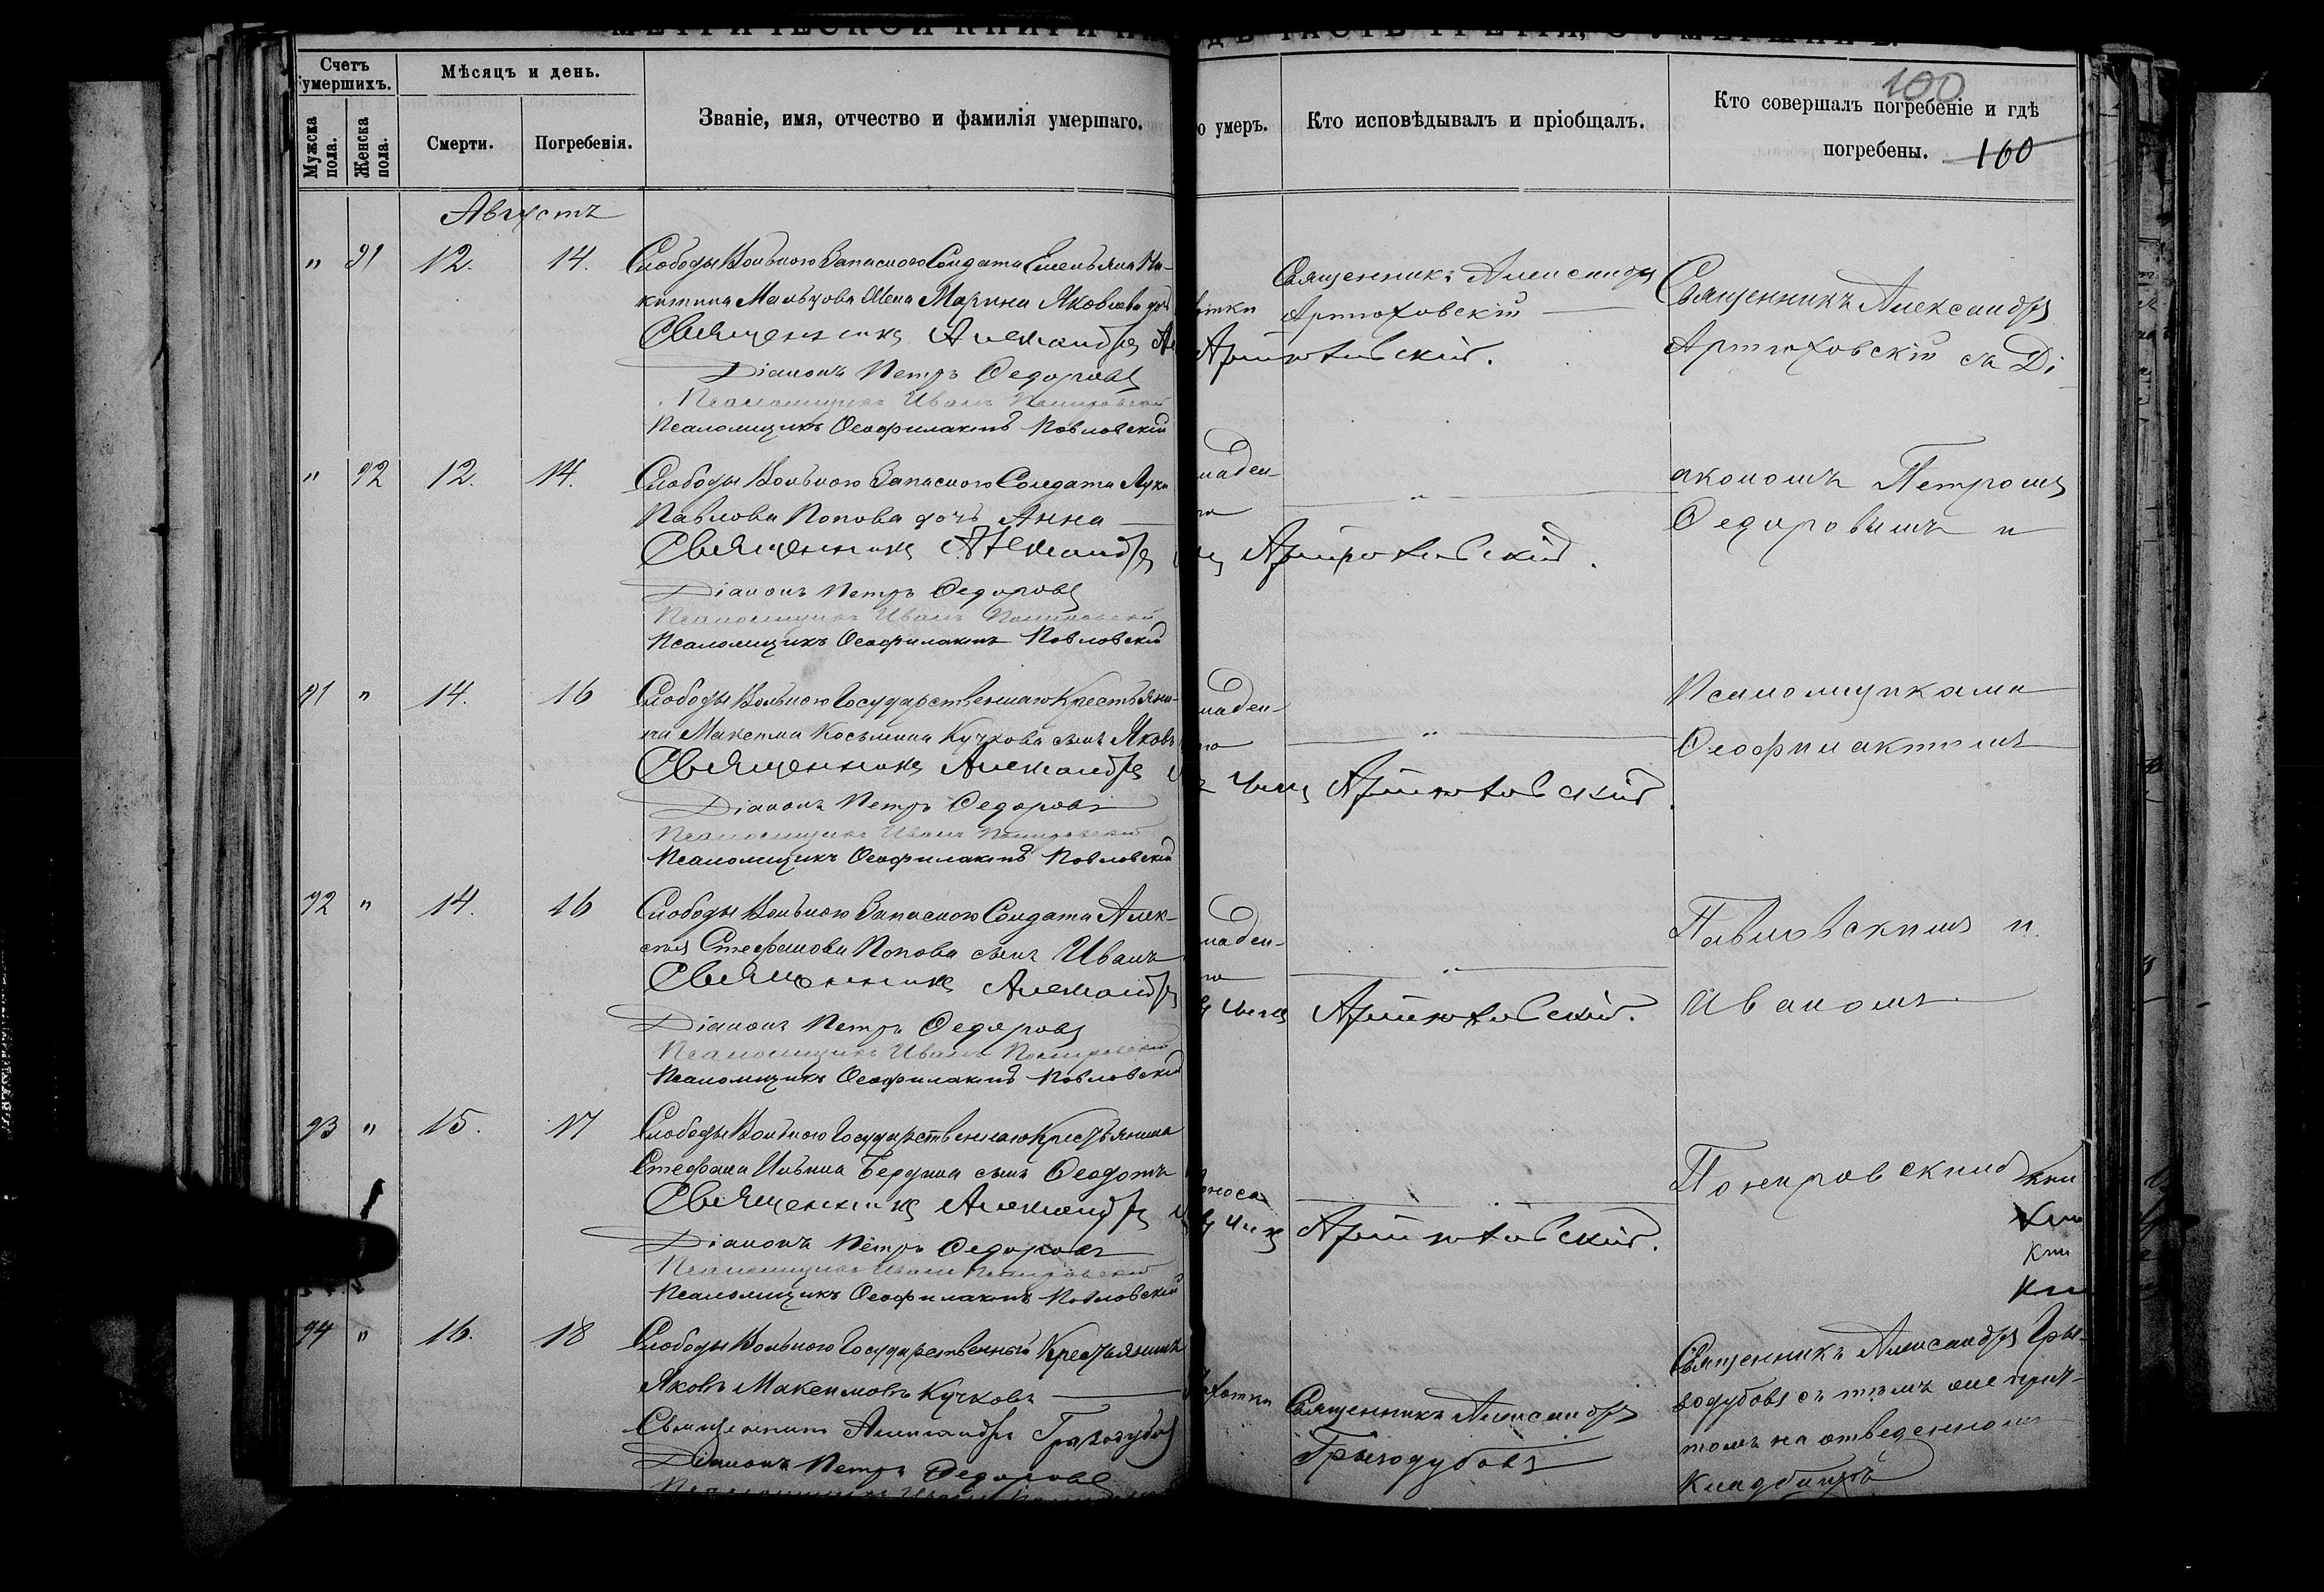 Счетъ умершихъ.
Мѣсяцъ и день.
Мужска пола.
Женска пола.
Смерти.
Погребенія.
Званіе, имя, отчество и фамилія умершаго.
о умеръ.
Кто исповѣдывалъ и пріобщалъ.
Кто совершалъ погребеніе и гдѣ
погребены.
100
100
Августъ
" 91 12. 14.
Слободы Вольного Запасного Солдата Емельяна Ни-
китина Мальцова жена Марина Яковлева
Священникъ Александръ
Діаконъ Петръ Федоровъ
Псаломщикъ Иванъ Покировскій
Псаломщикъ Феофилактъ Павловскій
Священникъ Александръ
Артюховскій
Артюховскій.
Священникъ Александръ
Артюховскій съ Ді-
" 92 12. 14.
Слободы Вольного Запасного Солдата Луки
Павлова Попова дочь Анна
Священникъ Александръ
Діаконъ Петръ Федоровъ
Псаломщикъ Иванъ Покировскій
Псаломщикъ Феофилактъ Павловскій
маден-
Артюховскій.
акономъ Петромъ
Федоровымъ и
91 " 14. 16
Слободы Вольного Государственнаго Крестьяни-
на Максима Косьмина Кучкова сынъ Яковъ
Священникъ Александръ
Діаконъ Петръ Федоровъ
Псаломщикъ Иванъ Покировскій
Псаломщикъ Феофилактъ Павловскій
маден-
Артюховскій.
Псаломщиками
Феофилактомъ
92 " 14. 16
Слободы Вольного Запасного Солдата Алек-
сѣя Стефанова Попова сынъ Иванъ
Священникъ Александръ
Діаконъ Петръ Федоровъ
Псаломщикъ Иванъ Покировскій
Псаломщикъ Феофилактъ Павловскій
маден-
Артюховскій.
Павловскимъ и
Иваномъ
93 " 15. 17
Слободы Вольного Государственнаго Крестьянина
Стефана Ильина сынъ Феодотъ
Священникъ Александръ
Діаконъ Петръ Федоровъ
Псаломщикъ Иванъ Покировскій
Псаломщикъ Феофилактъ Павловскій
поноса
Артюховскій.
94 " 16. 18
Слободы Вольного Государственный Крестьянинъ
Яковъ Максимовъ Кучковъ
Священникъ Александръ
Діаконъ Петръ Федоровъ
Священникъ Александръ
Священникъ Александръ
съ тѣмъ же прич-
томъ на отведенномъ
Кладбищѣ